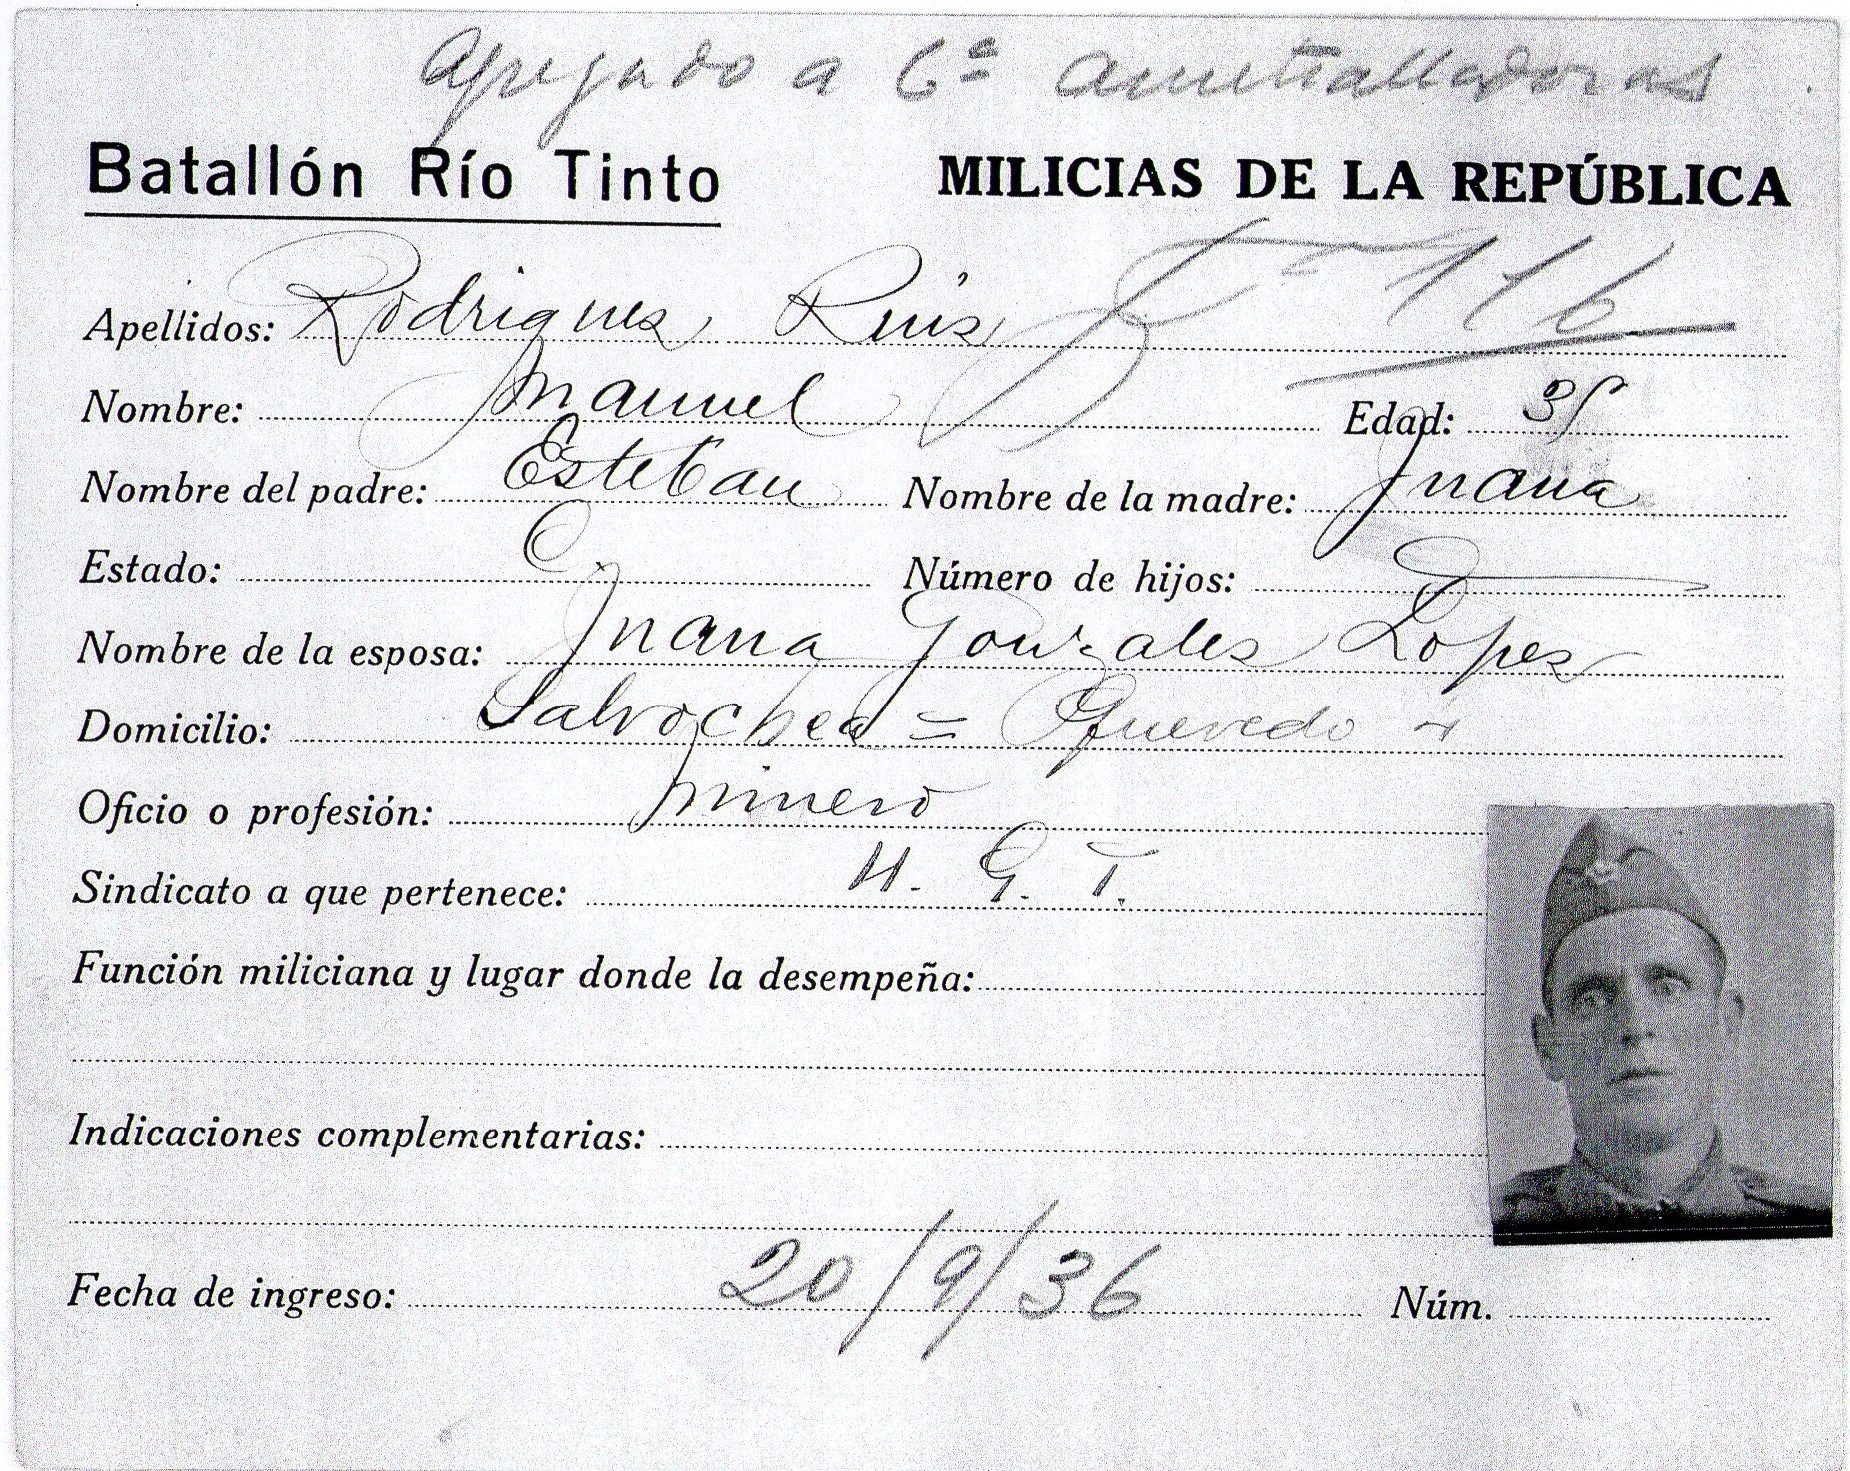 Agregado a Cª Ametralladoras
Batallón Río Tinto MILICIAS DE LA REPÚBLICA
116
Apellidos: Rodrigues Ruis
Nombre: Manuel Edad: 35
Nombre del padre: Esteban Nombre de la madre: Juana
Estado: C Número de hijos:
Nombre de la esposa: Juana Gonzales Lopes
Domicilio: Salvochea = Quevedo 4
Oficio o profesión: minero
Sindicato a que pertenece: U. G. T.
Función miliciana y lugar donde la desempeña:
Indicaciones complementarias:
Fecha de ingreso: 20/9/36 Núm.